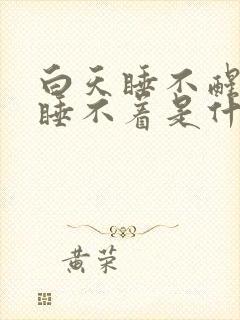 白天睡不醒
睡不着是什
黄荣